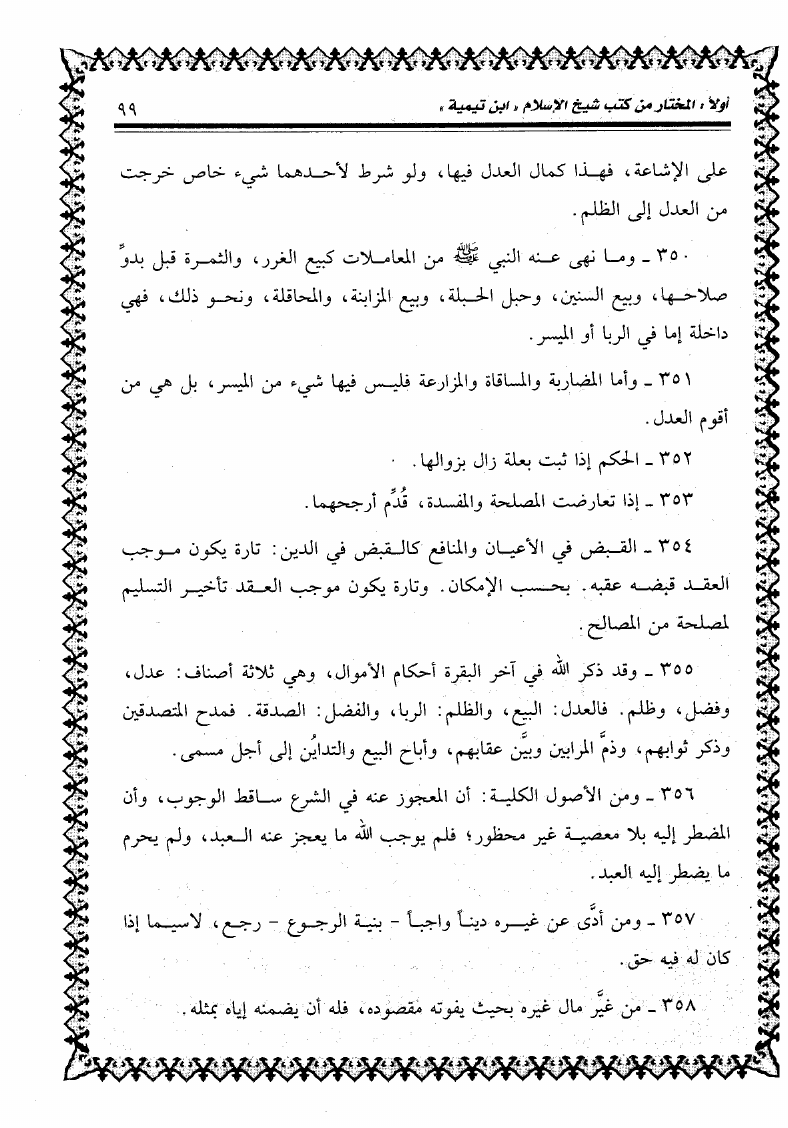 أولاً : المختار من كتب شيخ الإسلام « ابن تيمية » ٩٩
على الإشاعة، فهذا كمال العدل فيها، ولو شرط لأحدهما شيء خاص خرجت
من العدل إلى الظلم.
٣٥٠ ـ وما نهى عنه النبي ﷺ من المعاملات كبيع الغرر، والثمرة قبل بدوِّ
صلاحها، وبيع السنين، وحبل الحبلة، وبيع المزابنة، والمحاقلة، ونحو ذلك، فهي
داخلة إما في الربا أو الميسر.
٣٥١ ـ وأما المضاربة والمساقاة والمزارعة فليس فيها شيء من الميسر، بل هي من
أقوم العدل.
٣٥٢ ـ الحكم إذا ثبت بعلة زال بزوالها.
٣٥٣ ـ إذا تعارضت المصلحة والمفسدة، قُدِّم أرجحهما.
٣٥٤ ـ القبض في الأعيان والمنافع كالقبض في الدين: تارة يكون موجب
العقد قبضه عقبه. بحسب الإمكان. وتارة يكون موجب العقد تأخير التسليم
لمصلحة من المصالح.
٣٥٥ ـ وقد ذكر الله في آخر البقرة أحكام الأموال، وهي ثلاثة أصناف: عدل،
وفضل، وظلم. فالعدل: البيع، والظلم: الربا، والفضل: الصدقة. فمدح المتصدقين
وذكر ثوابهم، وذمَّ المرابين وبيَّن عقابهم، وأباح البيع والتدايُن إلى أجل مسمى.
٣٥٦ ـ ومن الأصول الكلية: أن المعجوز عنه في الشرع ساقط الوجوب، وأن
المضطر إليه بلا معصية غير محظور؛ فلم يوجب الله ما يعجز عنه العبد، ولم يحرم
ما يضطر إليه العبد.
٣٥٧ ـ ومن أدَّى عن غيره ديناً واجباً - بنية الرجوع - رجع، لاسيما إذا
كان له فيه حق.
٣٥٨ ـ من غيَّر مال غيره بحيث يفوته مقصوده، فله أن يضمنه إياه بمثله.